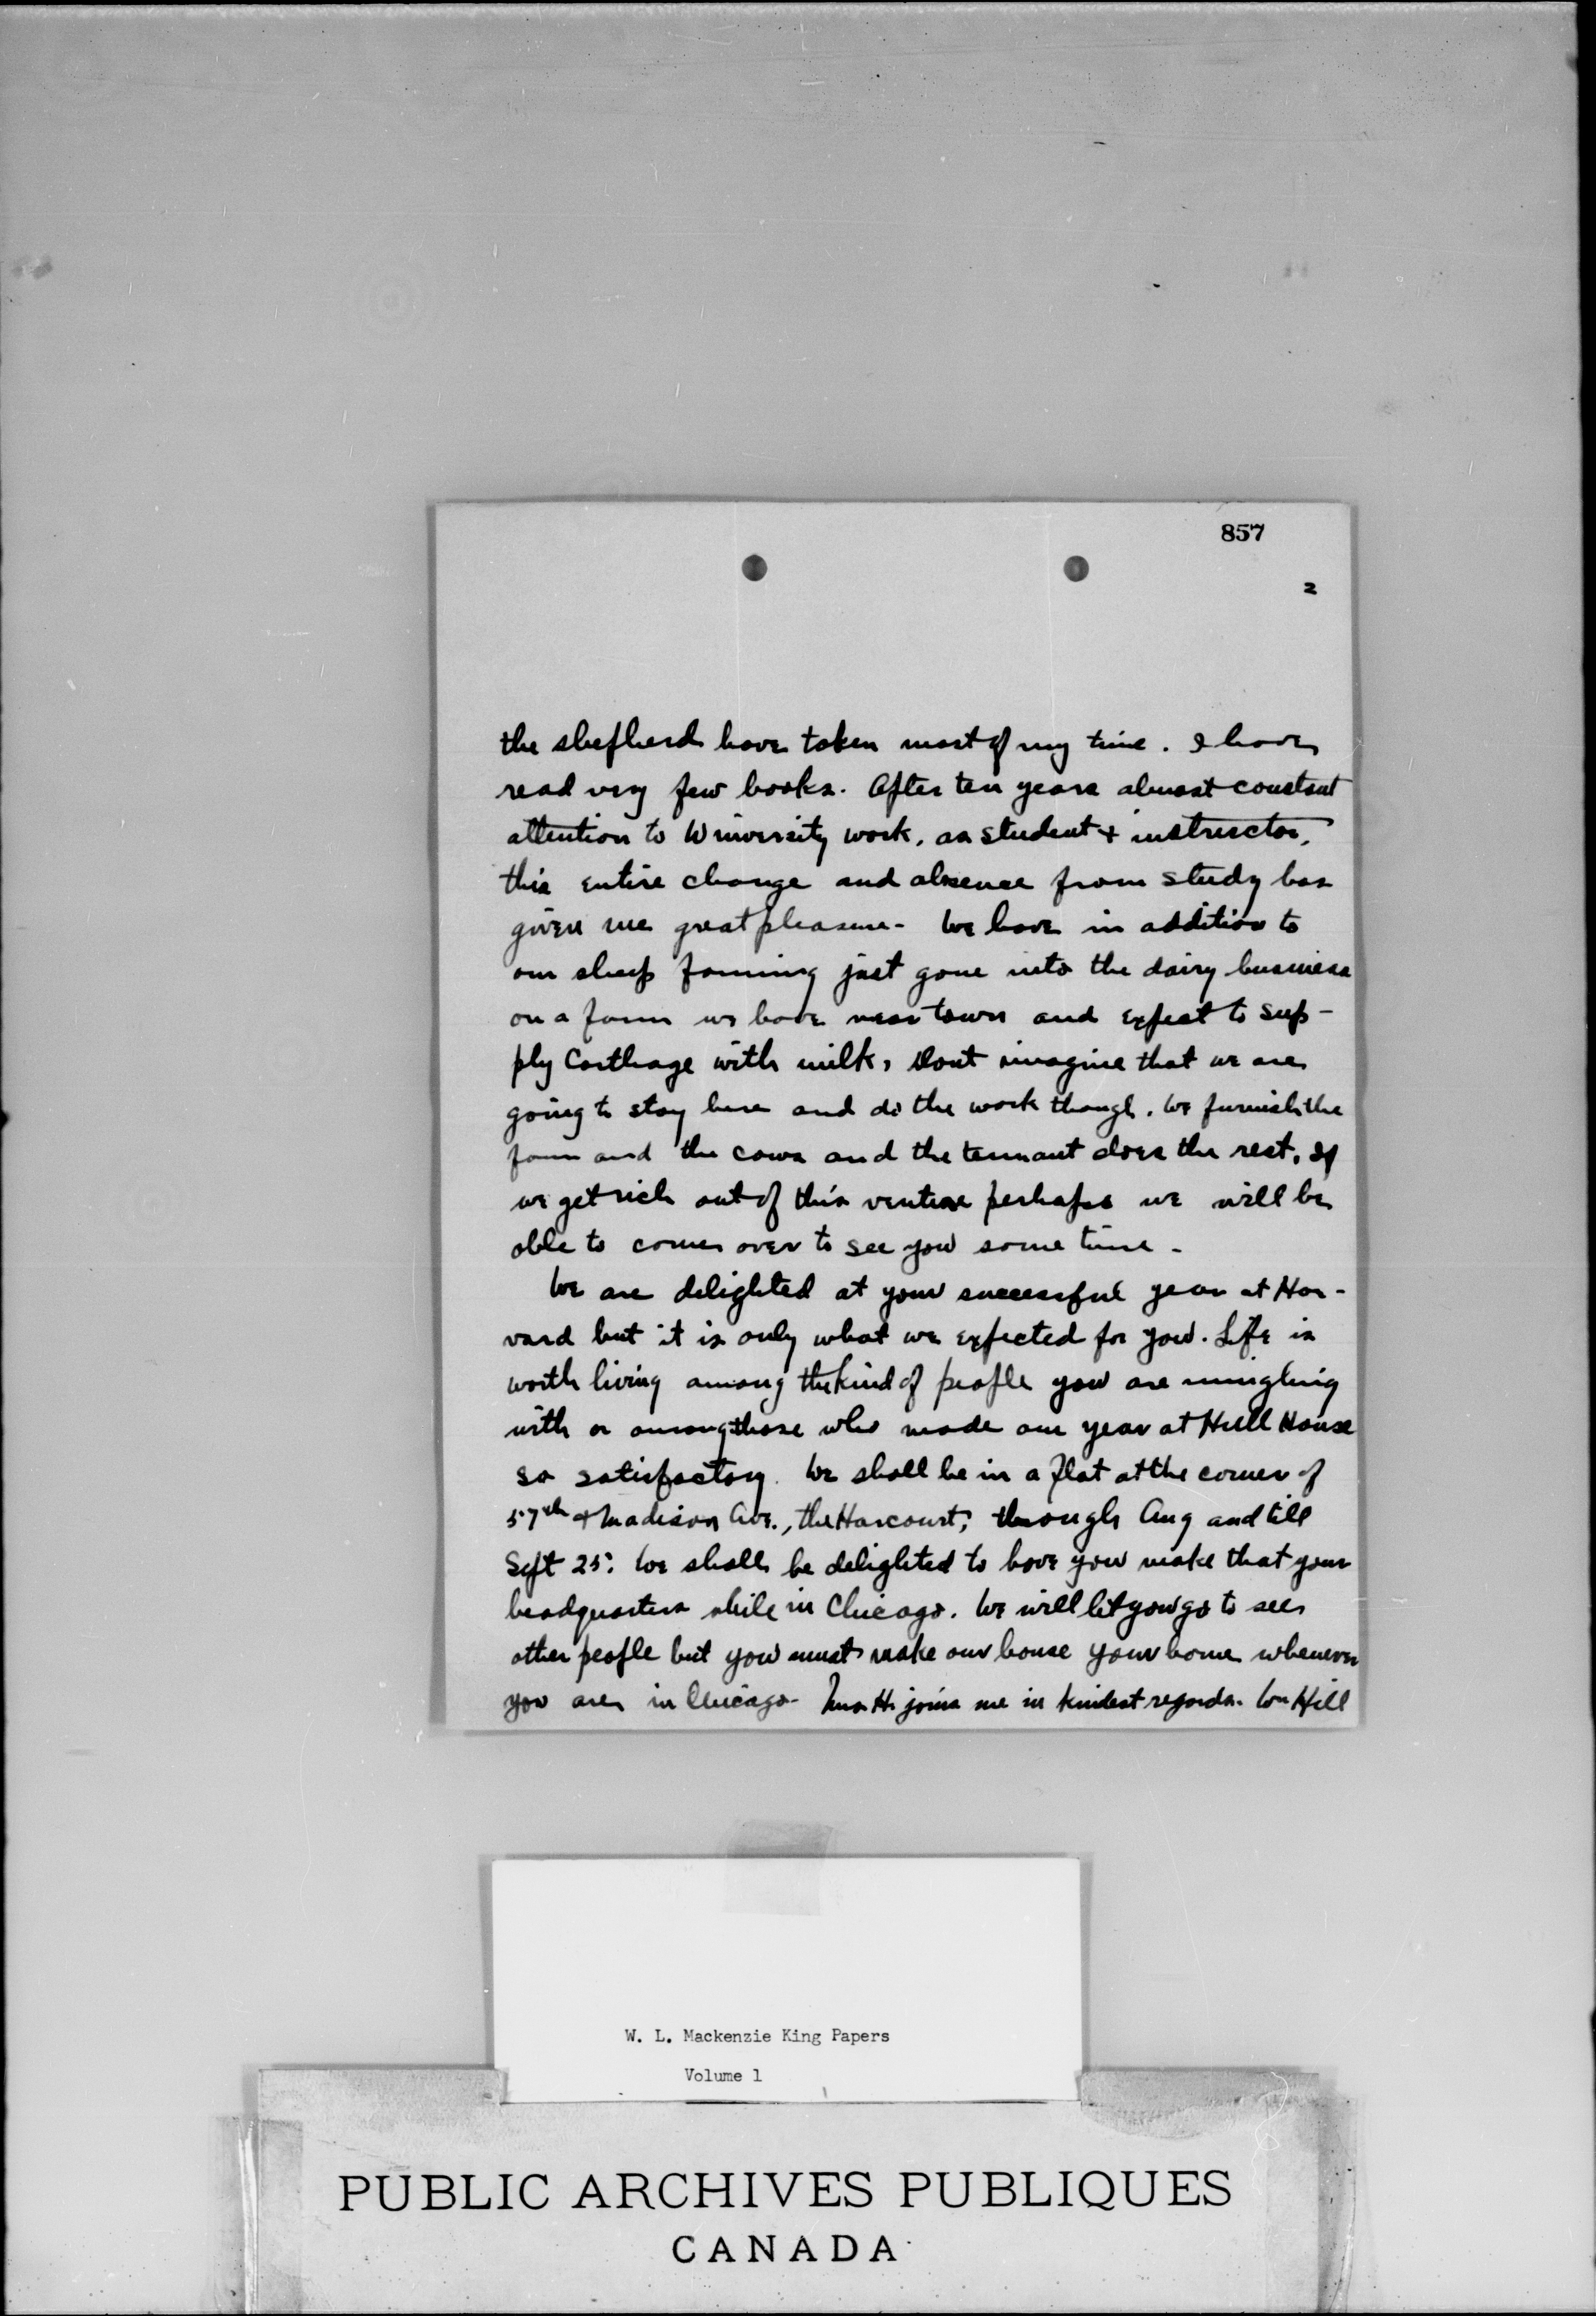 857
2
the shepherd have taken most of my time. I have
read very few books. After ten years almost constant
attention to University work, as student & instructor,
this entire change and absence from study has
given me great pleasure- We have in addition to
our sheep farming just gone into the dairy business
on a farm we have near town and expect to sup-
ply Carthage with milk, Dont imagine that we are
going to stay here and do the work though. We furnish the
farm and the cows and the tennant does the rest. If
we get rich out of this venture perhaps we will be
able to come over to see you some time-
We are delighted at your successful year at Har-
vard but it is only what we expected for you. Life is
worth living among the kind of people you are mingling
with or among those who made our year at Hull House
so satisfactory. We shall be in a flat at the corner of
57th & Madison Ave., the Harcourt, through Aug and till
Sept 25. We shall be delighted to have you make that your
headquarters while in Chicago. We will let you go to see
other people but you must make our house your home whenever
you are in Chicago- Mrs H. joins me in kindest regards. Wm Hill
W. L. Mackenzie King Papers
Volume 1
PUBLIC ARCHIVES PUBLIQUES
CANADA